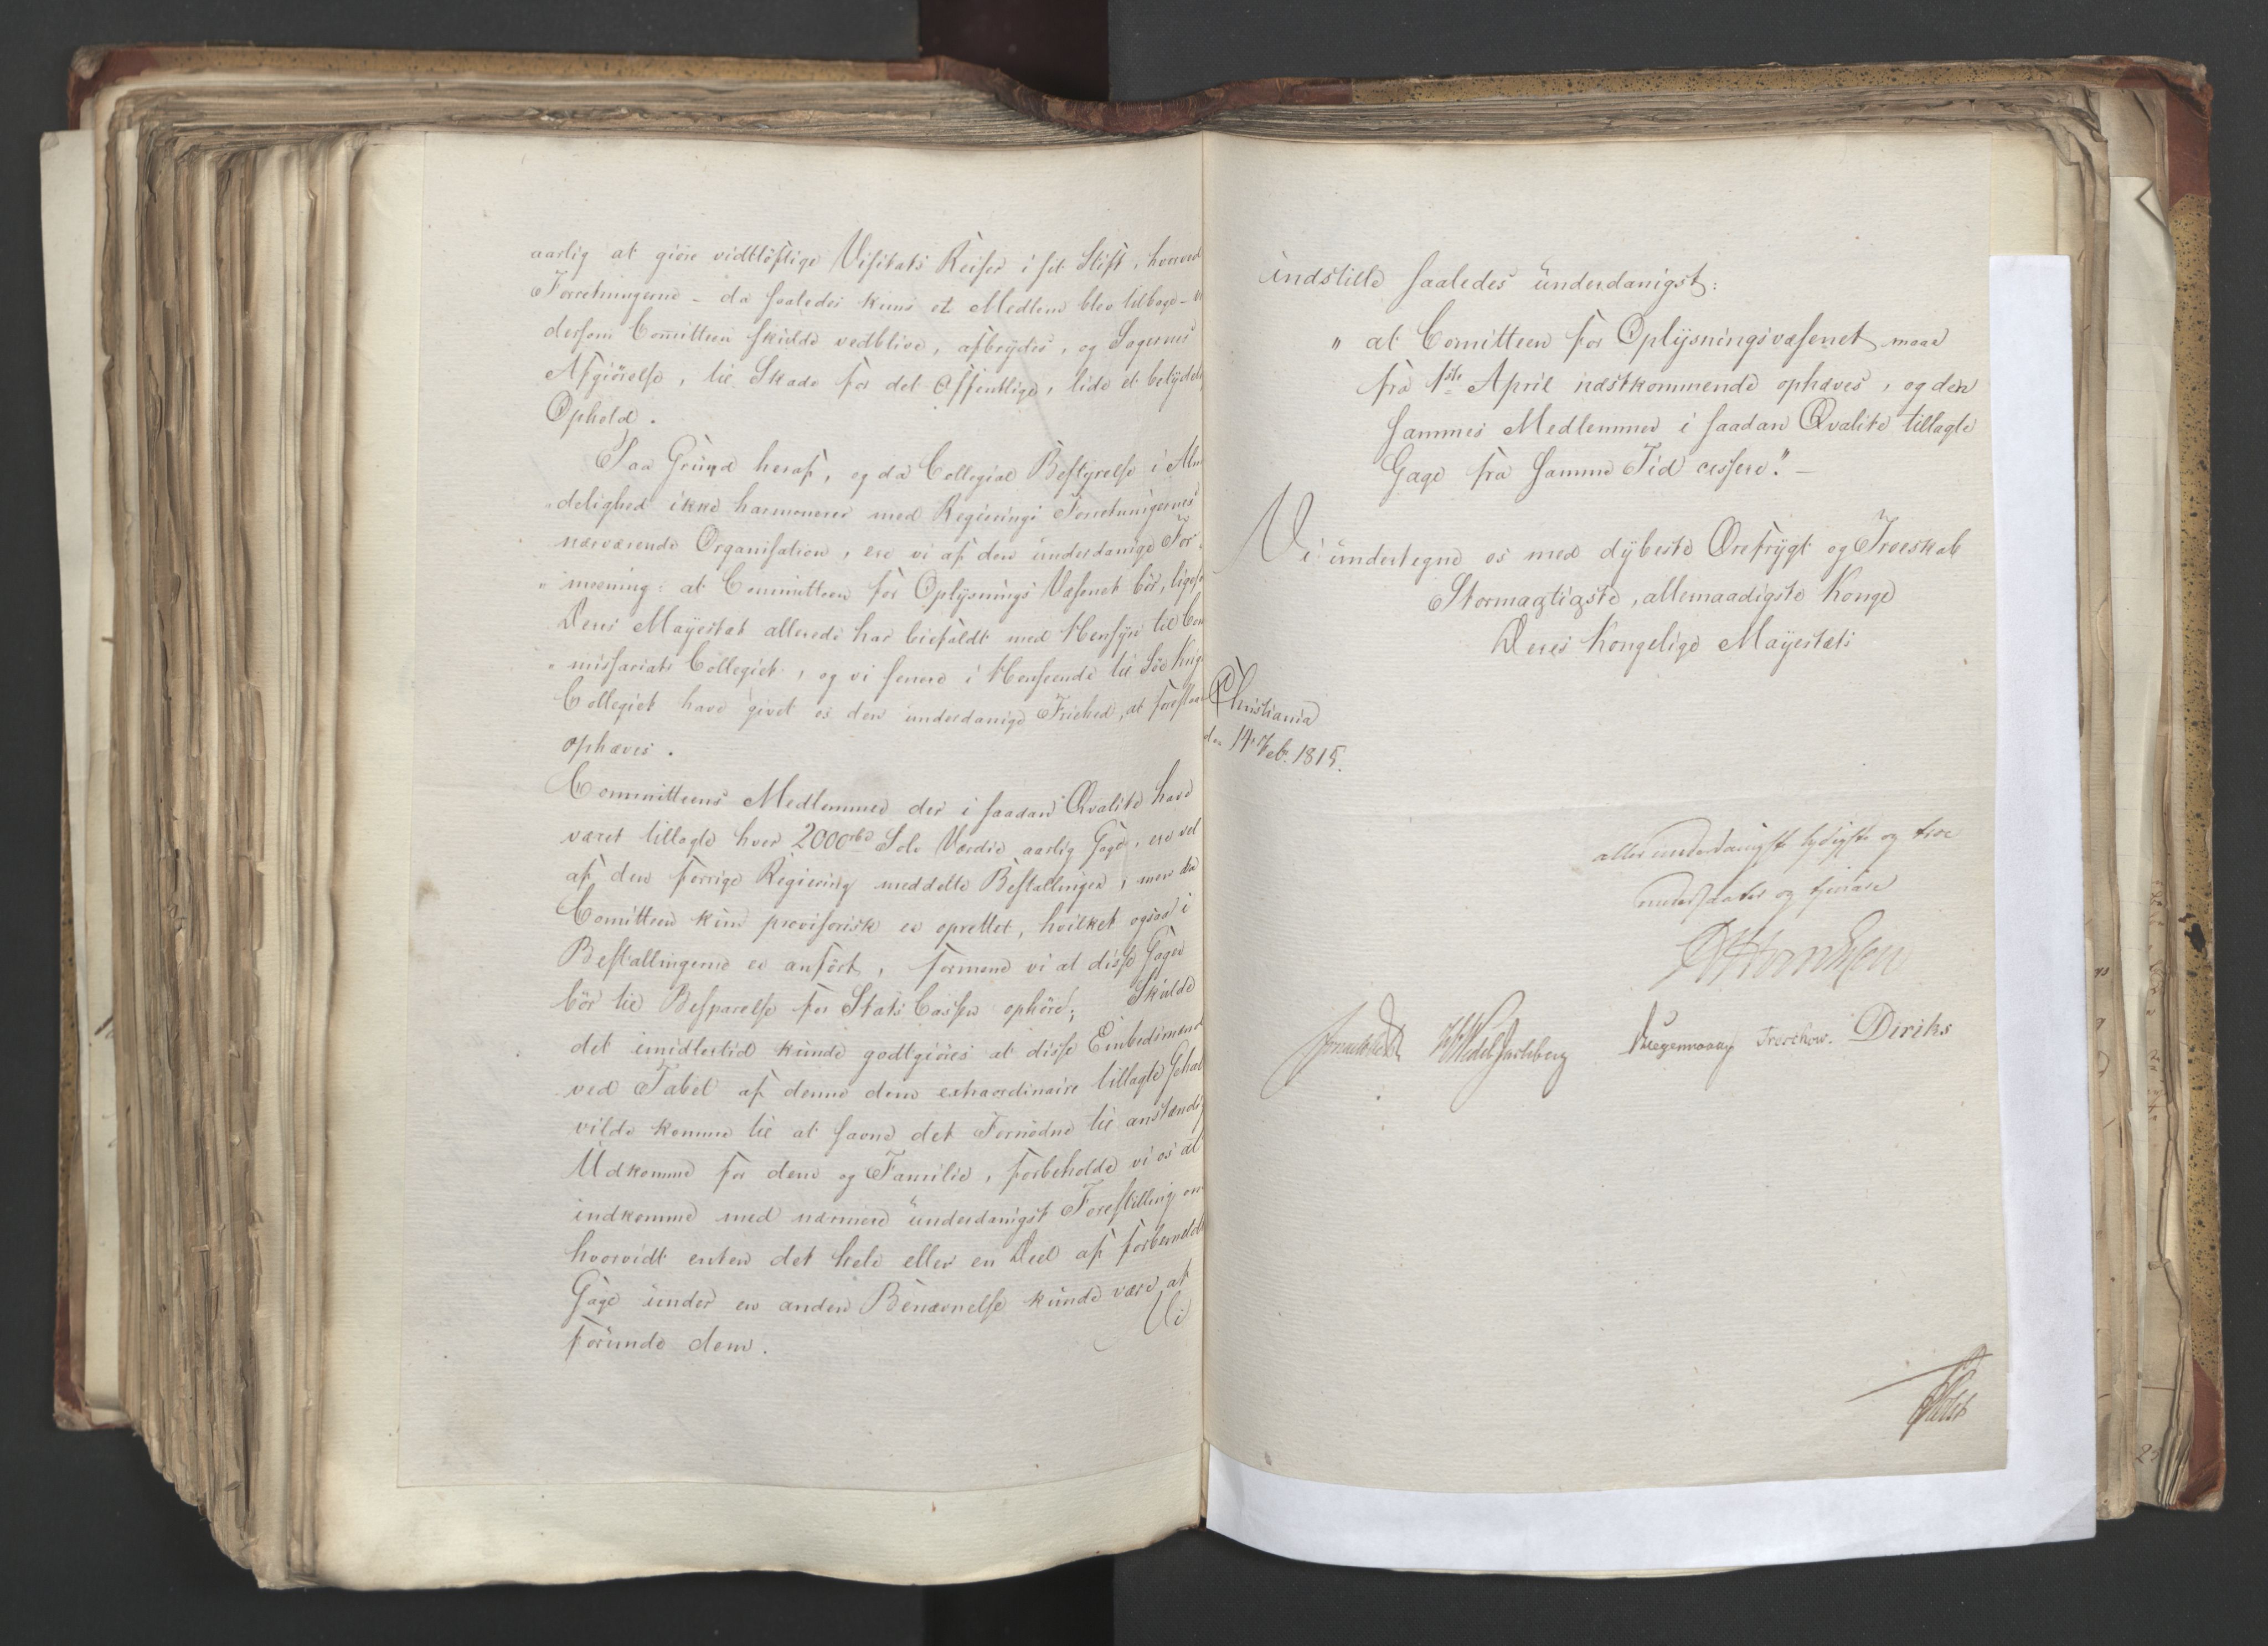 aarlig at giöre vidtlöftige Visitats Reiser i sit Stift, hvorved
Forretningerne - da saaledes kuns et Medlem blev tilbage -
dersom Comitteen skulde vedblive, afbrydes, og Sagernes
Afgiörelse, til Skade for det Offentlige, lide et betydeli
Ophold.
Paa Grund heraf, og da Collegial Bestyrelse i Alm
delighed ikke harmonerer med Regierings Forretningernes
nærværende Organisation, ere vi af den underdanige For
" meening: at Committeen for Oplysnings Væsenet bör, ligeso
Deres Mayestæt allerede har bifaldt med Hensyn til Com
" missariats Collegiet, og vi senere i Henseende til Söe Krigs
Collegiet have givet os den underdanige Friehed, at foreslaae
ophæves.
Committeens Medlemmer der i saadan Qvalite have
været tillagte hver 2000 rbd Sølv Værdie aarlig Gage, ere vel
af den forrige Regiering meddelte Bestallinger, men da
Comitteen kun provisorisk er oprettet, hvilket ogsaa i
Bestallingerne er anfört, formene vi at disse Gager
bör til Besparelse for Stats Cassen ophöre; Skulde
det imidlertid kunde godtgiöres at disse Embedsmænd
ved Tabet af denne dem extraordinaire tillagte Gehal
vilde komme til at savne det Fornödne til anstændig
Udkomme for dem og Familie, forbeholde vi os at
indkomme med nærmere underdanigst Forestilling om
hvorvidt enten det hele eller en Deel af forbemeldte
Gage under en anden Benævnelse kunde være at
forunde dem.
Vi
indstille saaledes underdanigst:
" at Comitteen for Oplysningsvæsenet maae
fra 1ste April næstkommende ophæves, og den
sammes Medlemmer i saadan Qvalite tillagte
Gage fra samme Tid cessere." -
Vi undertegne os med dybeste Ærefrygt og Troeskab
Stormægtigste, allernaadigste Konge
Deres Kongelige Mayestæts
Christiania
den 14 Feb. 1815.
allerunderdanigste lydigste og troe
undersaatter og tienere
Sommerhielm Wedel Jarlsberg Hegermann Treschow. Diriks
Holst